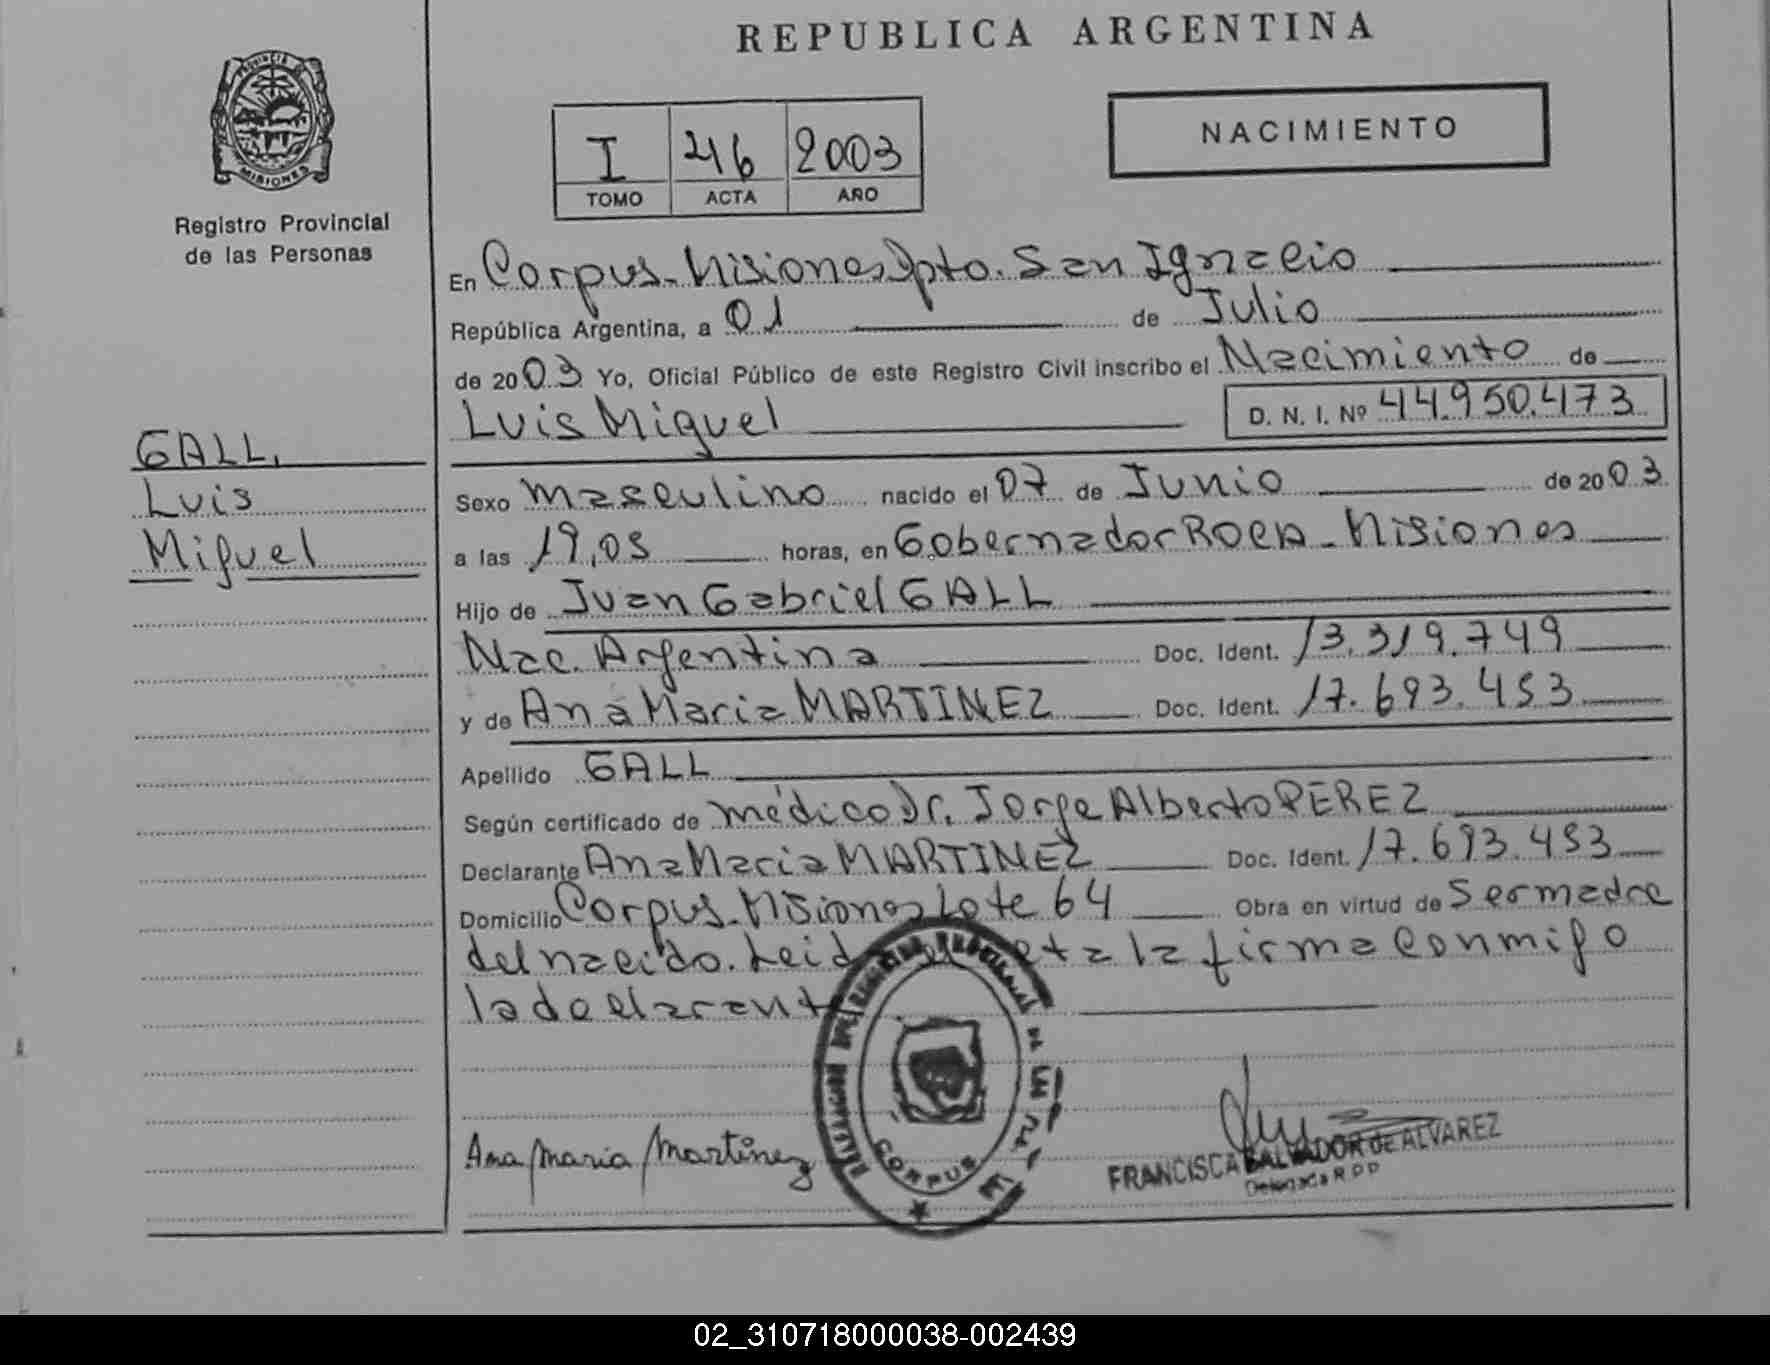 REPUBLICA ARGENTINA
PROVINCIA DE
MISIONES
Registro Provincial
de las Personas
NACIMIENTO
I 46 2003
TOMO ACTA AÑO
En Corpus-Misiones Dpto. San Ignacio
República Argentina, a 01 de Julio
de 2003 Yo, Oficial Público de este Registro Civil inscribo el Nacimiento de
Luis Miguel D. N. I. Nº 44.950.473
GALL,
Luis
Miguel
Sexo Masculino nacido el 07 de Junio de 2003
a las 19,05 horas, en Gobernador ROCA - Misiones
Hijo de Juan Gabriel GALL
Nac. Argentina Doc. Ident. 13.319.749
y de Ana Maria MARTINEZ Doc. Ident. 17.693.453
Apellido GALL
Según certificado de médico Dr. Jorge Alberto PEREZ
Declarante Ana Maria MARTINEZ Doc. Ident. 17.693.453
Domicilio Corpus-Misiones Lote 64 Obra en virtud de Ser madre
del nacido. Leid acta la firma conmigo
la declarant
CORPUS
Ana Maria Martinez
FRANCISCA SALVADOR de ALVAREZ
Delegada R P P
02_310718000038-002439